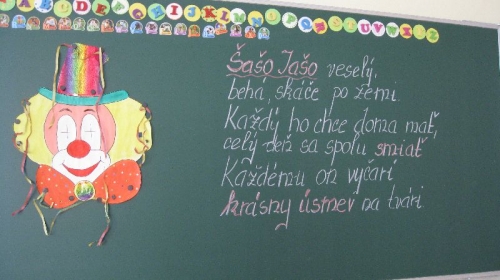 Šašo Jašo veselý,
behá, skáče po zemi.
Každý ho chce doma mať,
celý deň sa spolu smiať
Každému on vyčarí
krásny úsmev na tvári.